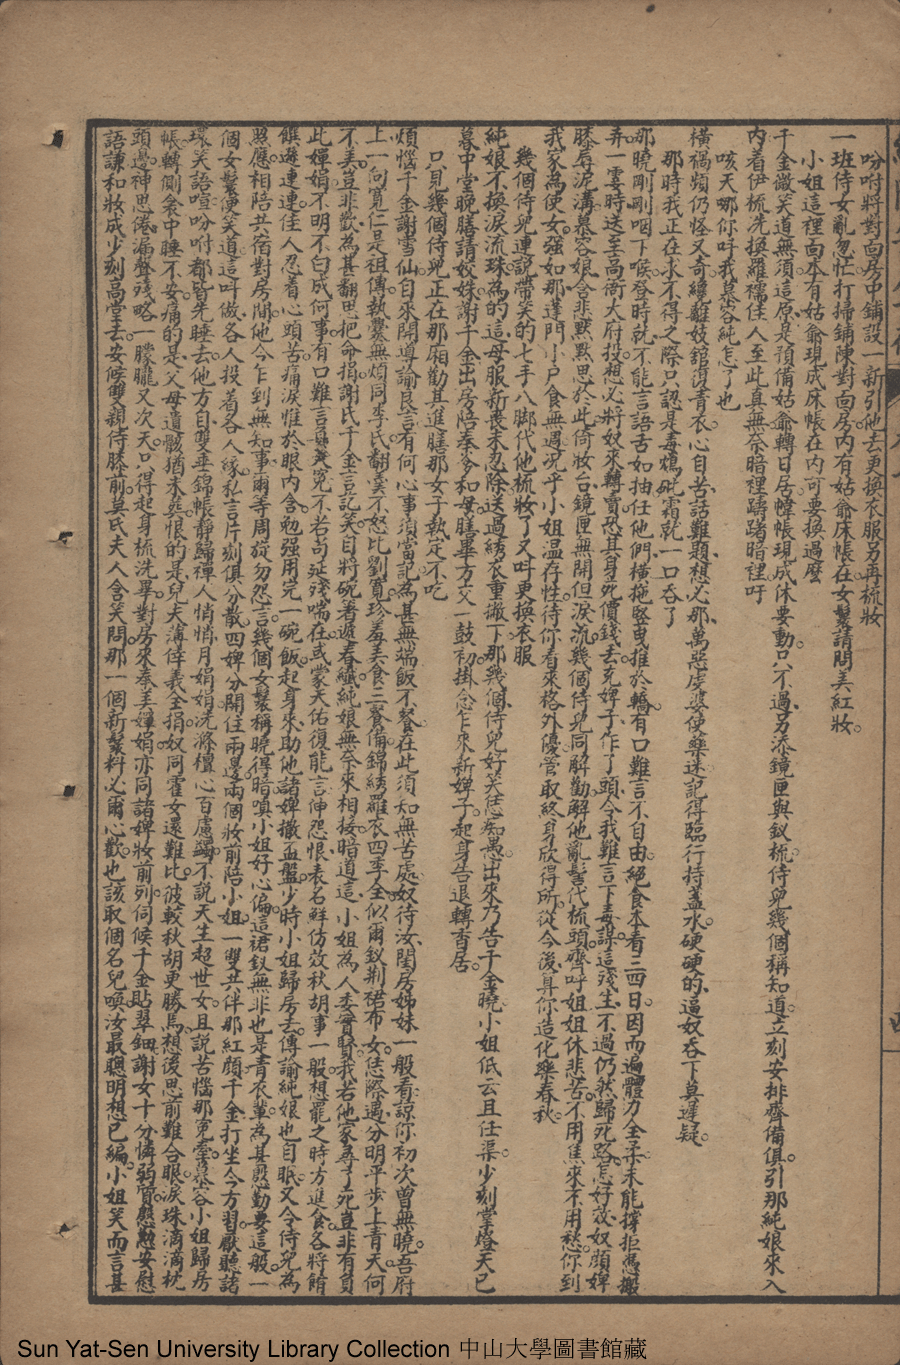 吩咐將對面房中鋪設一新引他去更換衣服另再梳妝
一班侍女亂忽忙打掃鋪陳對面房內有姑爺床帳在女鬟請問美紅妝
小姐這裡面本有姑爺現成床帳在內可要換過麼
千金微笑道無須這原是預備姑爺轉日居幃帳現成休要動只不過另添鏡匣與釵梳侍兒幾個稱知道立刻安排齊備俱引那純娘來入
內着伊梳洗換羅襦佳人至此真無奈暗裡躊躇暗裡吁
咳天哪你吁我慕容純怎了也
橫禍頻仍怪又奇纔離妓舘復青衣心自苦話難題想必那萬惡虔婆使藥迷記得臨行持盞水硬硬的逼奴吞下莫遲疑
那時我正在求不得之際只認是毒鴆砒霜就一口吞了
那曉剛剛咽下喉登時就不能言語舌如抽任他們橫拖豎曳推於轎有口難言不自由絕食本看三四日因而遍體力全柔未能撑拒憑搬
弄一霎時送至高衙大府投想必將奴來轉賣恐其身死價錢丢充婢子作丫頭令我難言下毒謀這殘生不過仍然歸死路怎好茲奴顏婢
膝辱泥溝慕容娘含悲默默思於此倚妝台鏡匣無開但淚流幾個侍兒同解勸解他亂髻代梳頭齊呼姐姐休悲苦不用焦來不用愁你到
我家為使女強如那蓬門小戶食無週况乎小姐溫存性待你看來格外優管取終身欣得所從今後算你造化樂春秋
幾個侍兒連說帶笑的七手八脚代他梳妝了又叫更換衣服
純娘不換淚流珠為的這母服新喪未忍除送過綉衣重撇下那幾個侍兒好笑恁痴愚出來乃告千金曉小姐低云且任渠少刻掌燈天已
暮中堂晚膳請姣姝謝千金出房陪奉爹和母膳畢方交一鼓初掛念乍來新婢子起身告退轉香居
只見幾個侍兒正在那廂勸其進膳那女子執定不吃
煩惱千金謝雪仙自來開導諭良言有何心事須當記為甚無端飯不餐在此須知無苦處奴待汝閨房姊妹一般看諒你初次曾無曉吾府
上一向寬仁是祖傳執爨無煩同李氏翻羹不怒比劉寬珍羞美食三餐備錦綉羅衣四季全似爾釵荆裙布女恁際遇分明平步上青天何
不美豈非歡為甚翻思把命捐謝氏千金言訖笑自將碗箸遞春纖純娘無奈來相接暗道這小姐為人委實賢我若他家尋了死豈非有負
此嬋娟不明不白成何事有口難言莫莫冤不若苟延殘喘在或蒙天佑復能言伸怨恨表名鮮仿效秋胡事一般想罷之時方進食各將餚
饌遞連連佳人忍着心頭苦痛淚惟於眼內含勉强用完一碗飯起身來助他諸婢撤盃盤少時小姐歸房去傳諭純娘也自眠又令侍兒為
照應相陪共宿對房間他今乍到無知事爾等周旋勿怨言幾個女鬟稱曉得暗嗔小姐好心偏這裙釵無非也是青衣輩為甚慇勤要這般一
個女鬟便笑道這叫做各人投着各人緣私言片刻俱分散四婢分開住兩邊兩個妝前陪小姐一雙共伴那紅顏千金打坐今方習厭聽諸
環笑語喧吩咐都皆先睡去他方自雙垂錦帳靜歸禪人悄悄月娟娟洗滌檀心百慮蠲不說天生超世女且說苦惱那冤牽慕容小姐歸房
帳轉側衾中睡不安痛的是父母遺骸猶未葬恨的是兒夫薄倖義全捐奴同霍女還難比彼較秋胡更勝焉想後思前難合眼淚珠滴滴枕
頭邊神思倦漏聲殘略一朦朧又次天只得起身梳洗畢對房來奉美嬋娟亦同諸婢妝前列伺候千金貼翠鈿謝女十分憐弱質慰懃安慰
語謙和妝成少刻高堂去安候雙親侍膝前莫氏夫人含笑問那一個新鬟料必爾心歡也該取個名兒喚汝最聰明想已編小姐笑而言甚
Sun Yat-Sen University Library Collection 中山大學圖書館藏